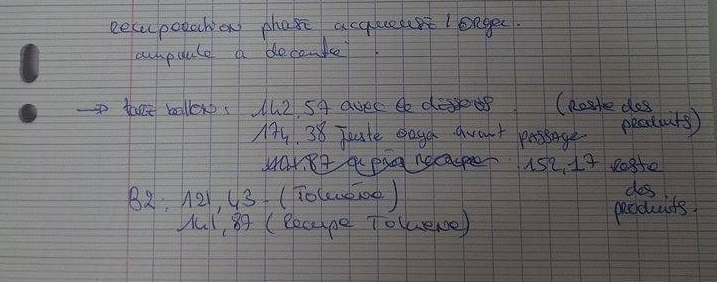 recuperation phase acqueuse / orga.
ampoule a decanté.
→ tare ballon : 142,57 avec le dessous (Reste des produits)
174.38 juste orga avant passage
141.87 recupe 152,17 reste des produits.
B2 : 121,43 - (Toluène)
141,87 (Recupe Toluene)